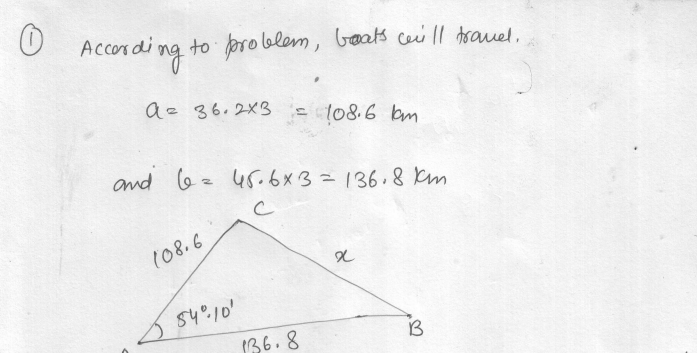 ① According to problem, boats will travel.
a = 36.2×3 = 108.6 km
and b = 45.6×3 = 136.8 Km
C
108.6
x
54°.10'
B
136.8
A